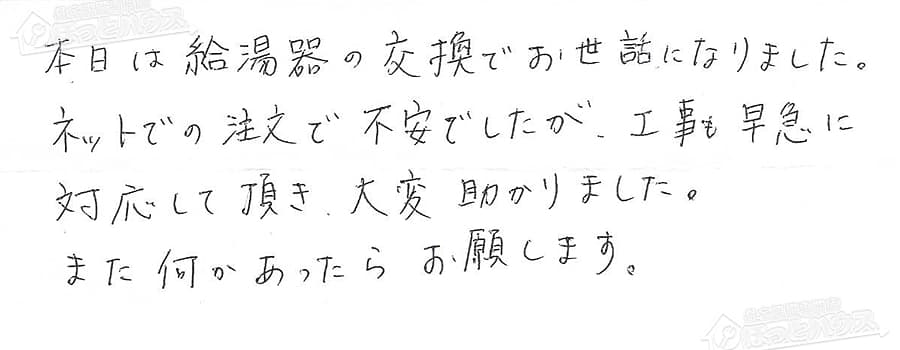 本日は給湯器の交換でお世話になりました。
ネットでの注文で不安でしたが、工事も早急に
対応して頂き、大変助かりました。
また何かあったらお願いします。